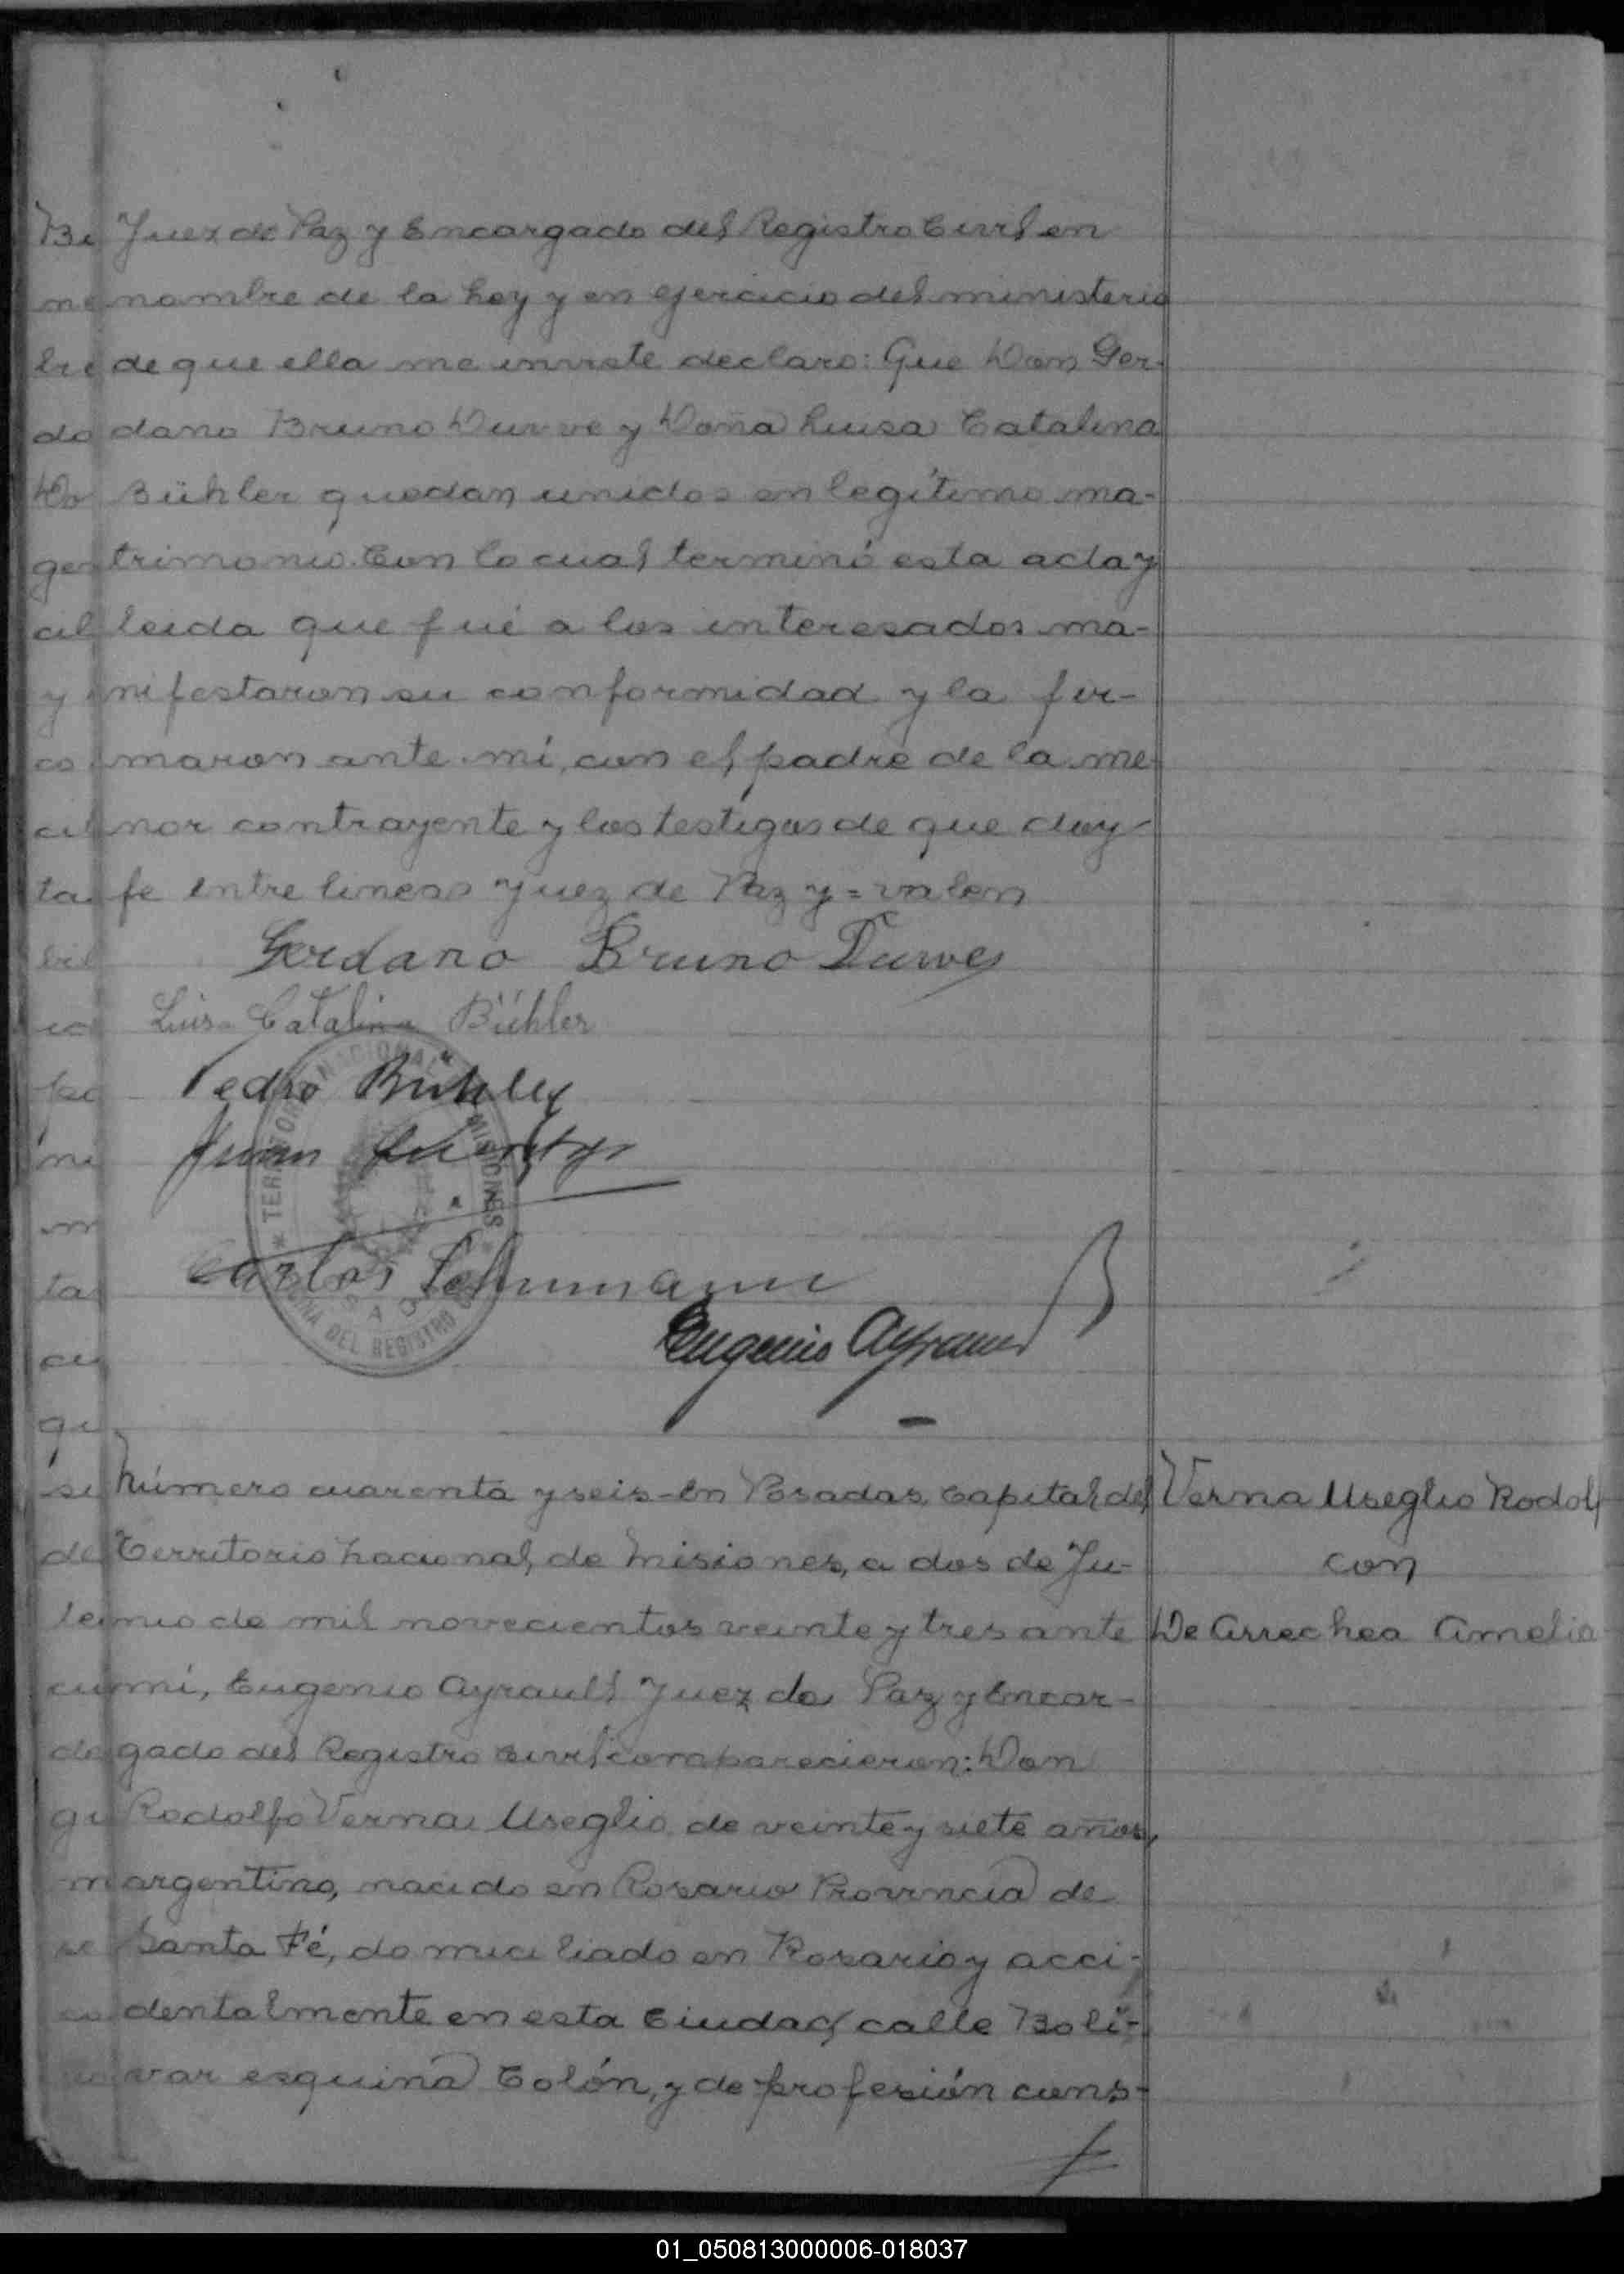 Juez de Paz y Encargado del Registro Civil en
nombre de la Ley y en ejercicio del ministerio
de que ella me inviste declaro: Que Don Ger-
dano Bruno Durve y Doña Luisa Catalina
Bühler quedan unidos en legítimo ma-
trimonio. Con lo cual terminó esta acta y
leida que fué a los interesados ma-
nifestaron su conformidad y la fir-
maron ante mí, con el padre de la me-
nor contrayente y los testigos de que doy
fe Entre lineas Juez de Paz y = valen
Gerdano Bruno Durve
Luisa Catalina Bühler
Pedro Bühler
Juan
Carlos Schumann
Eugenio Ayrault
TERRITORIO NACIONAL MISIONES
OFICINA DEL REGISTRO
Número cuarenta y seis - En Posadas, Capital del
Territorio Nacional, de Misiones, a dos de Ju-
nio de mil novecientos veinte y tres ante
mí, Eugenio Ayrault Juez de Paz y Encar-
gado del Registro Civil comparecieron: Don
Rodolfo Verna Useglio de veinte y siete años,
argentino, nacido en Rosario Provincia de
Santa Fé, domiciliado en Rosario y acci-
dentalmente en esta Ciudad, calle Boli-
var esquina Colón, y de profesión cons-
Verna Useglio Rodolf
con
De Arrechea Amelia
01_050813000006-018037